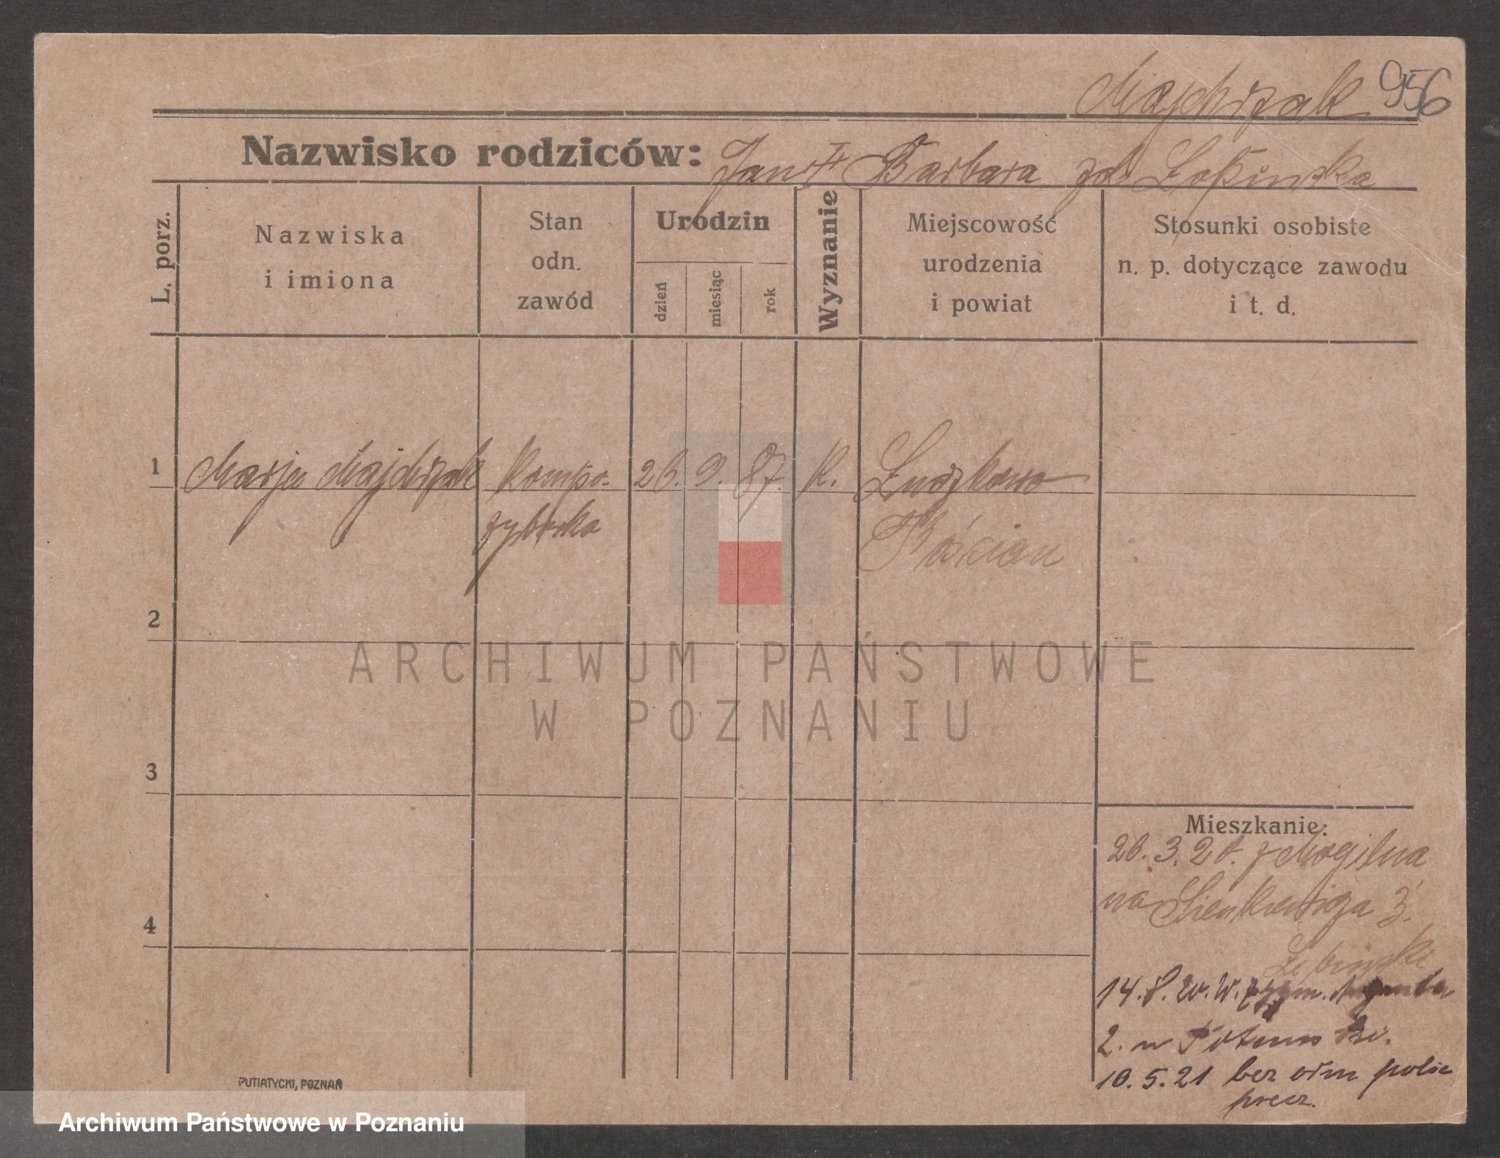 Majchrzak 956
Nazwisko rodziców: Jan i Barbara zd. Łapińska
L. porz.
Nazwiska
i imiona
Stan
odn.
zawód
Urodzin
dzień
miesiąc
rok
Wyznanie
Miejscowość
urodzenia
i powiat
Stosunki osobiste
n. p. dotyczące zawodu
i t. d.
1 Marja Majchrzak 26. 9. 87. K.
Kościan
2
ARCHIWUM PAŃSTWOWE
W POZNANIU
3
Mieszkanie:
26. 3. 20. z Mogilna
na Sienkiewicza 3.
4
14. 8. 20. W.
2. u
10. 5. 21 bez odm polic
PUTIATYCKI, POZNAŃ
Archiwum Państwowe w Poznaniu